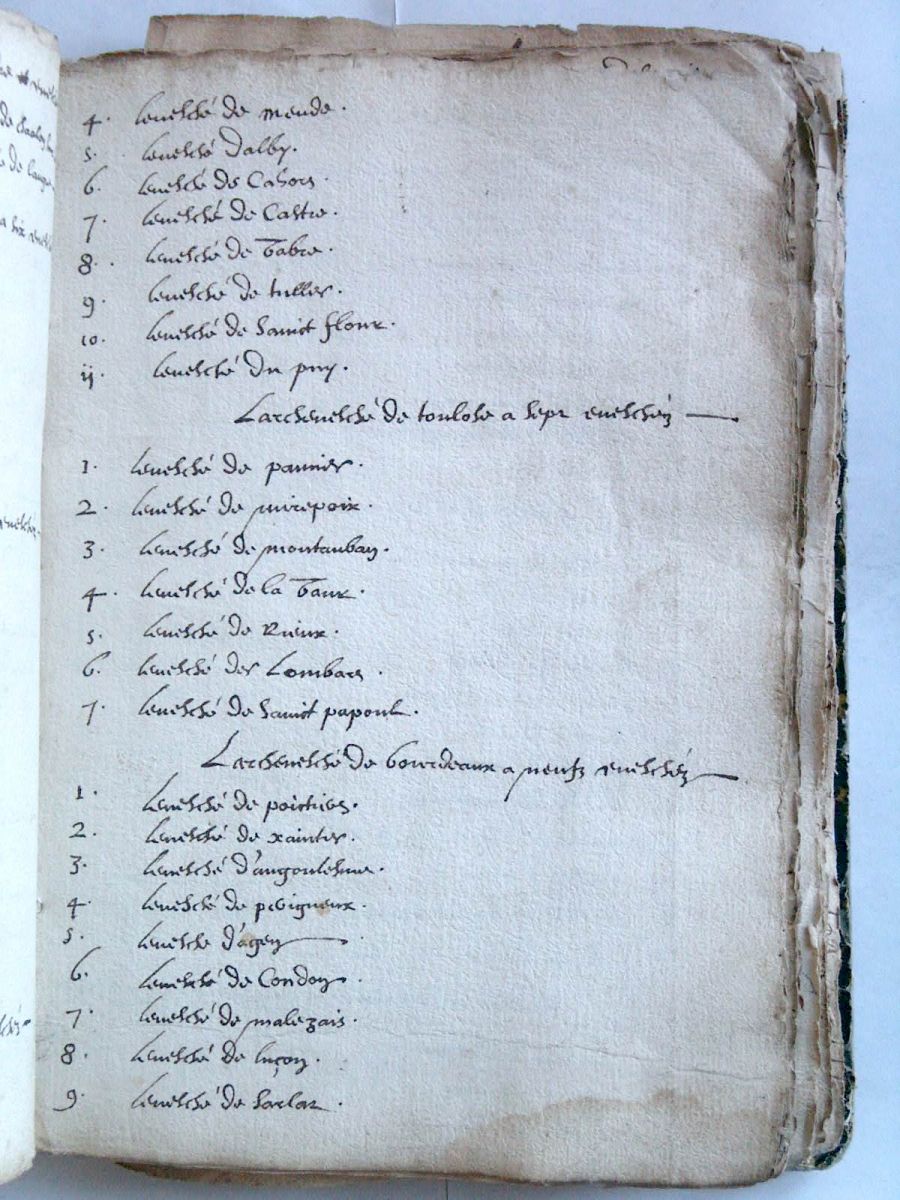 4. leuesché de mende.
5. leuesché dalby.
6. leuesché de Cahors.
7. leuesché de Castre.
8. leuesché de Vabre.
9. leuesché de tulles.
10. leuesché de sainct flour.
ij. leuesché du puy.
Larcheuesché de toulose a sept eueschéz
1. leuesché de pamies.
2. leuesché de mirepoix.
3. leuesché de montauban.
4. leuesché de la Vaur.
5. leuesché de Rieux.
6. leuesché des Lombars.
7. leuesché de sainct papoul.
Larcheuesché de bourdeaux a neufz eueschéz
1. leuesché de poictiers.
2. leuesché de xaintes.
3. leuesché d'angoulesme.
4. leuesché de perigueux.
5. leuesche d'agen
6. leuesché de Condom.
7. leuesché de malezais.
8. leuesché de luçon.
9. leuesché de sarlat.